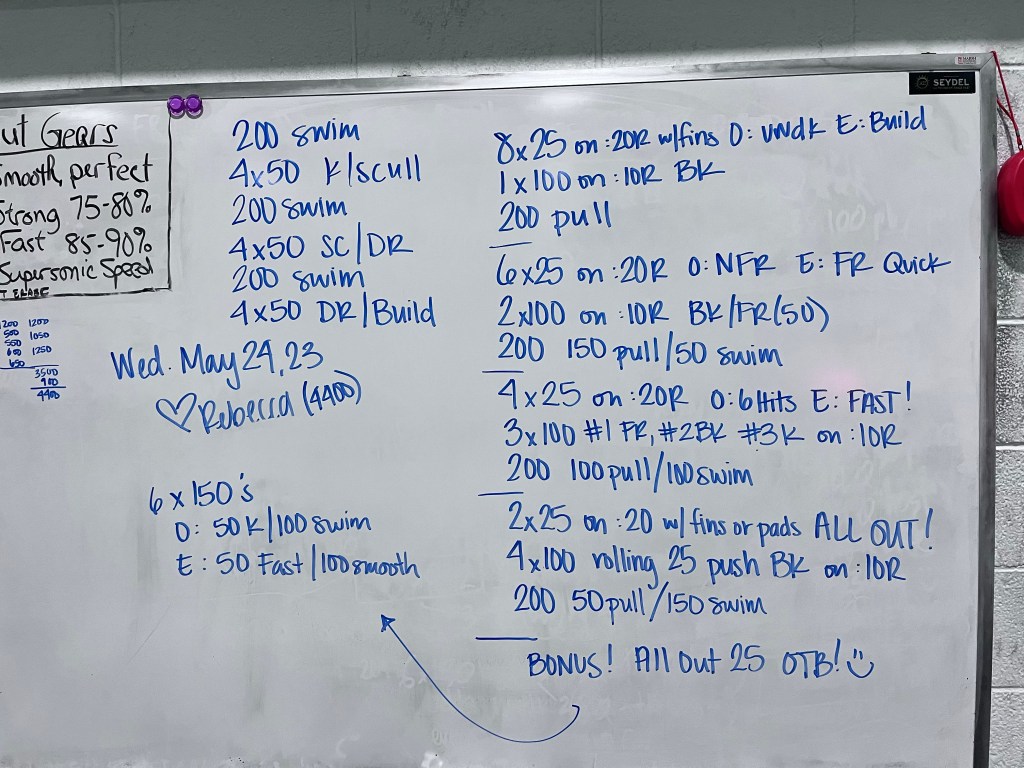 SEYDEL
ut Gears
Smooth, perfect
Strong 75-80%
Fast 85-90%
Supersonic Speed
1200 1200
500 1050
550
600 1250
650
3500
900
4400
200 swim
4x50 K/scull
200 swim
4x50 SC/DR
200 swim
4x50 DR/Build
Wed. May 24, 23
♡Rebecca (4400)
6 x 150's
O: 50 K/100 swim
E: 50 Fast/100 smooth
8x25 on :20R w/fins O: UNdK E: Build
1x100 on :10R BK
200 pull
6x25 on :20R O: NFR E: FR Quick
2x100 on :10R BK/FR(50)
200 150 pull/50 swim
4x25 on :20R O: 6 Hits E: FAST!
3x100 #1 FR, #2 BK #3 K on :10R
200 100 pull/100 swim
2x25 on :20 w/fins or pads ALL OUT!
4x100 rolling 25 push BK on :10R
200 50 pull/150 swim
BONUS! All Out 25 OTB!